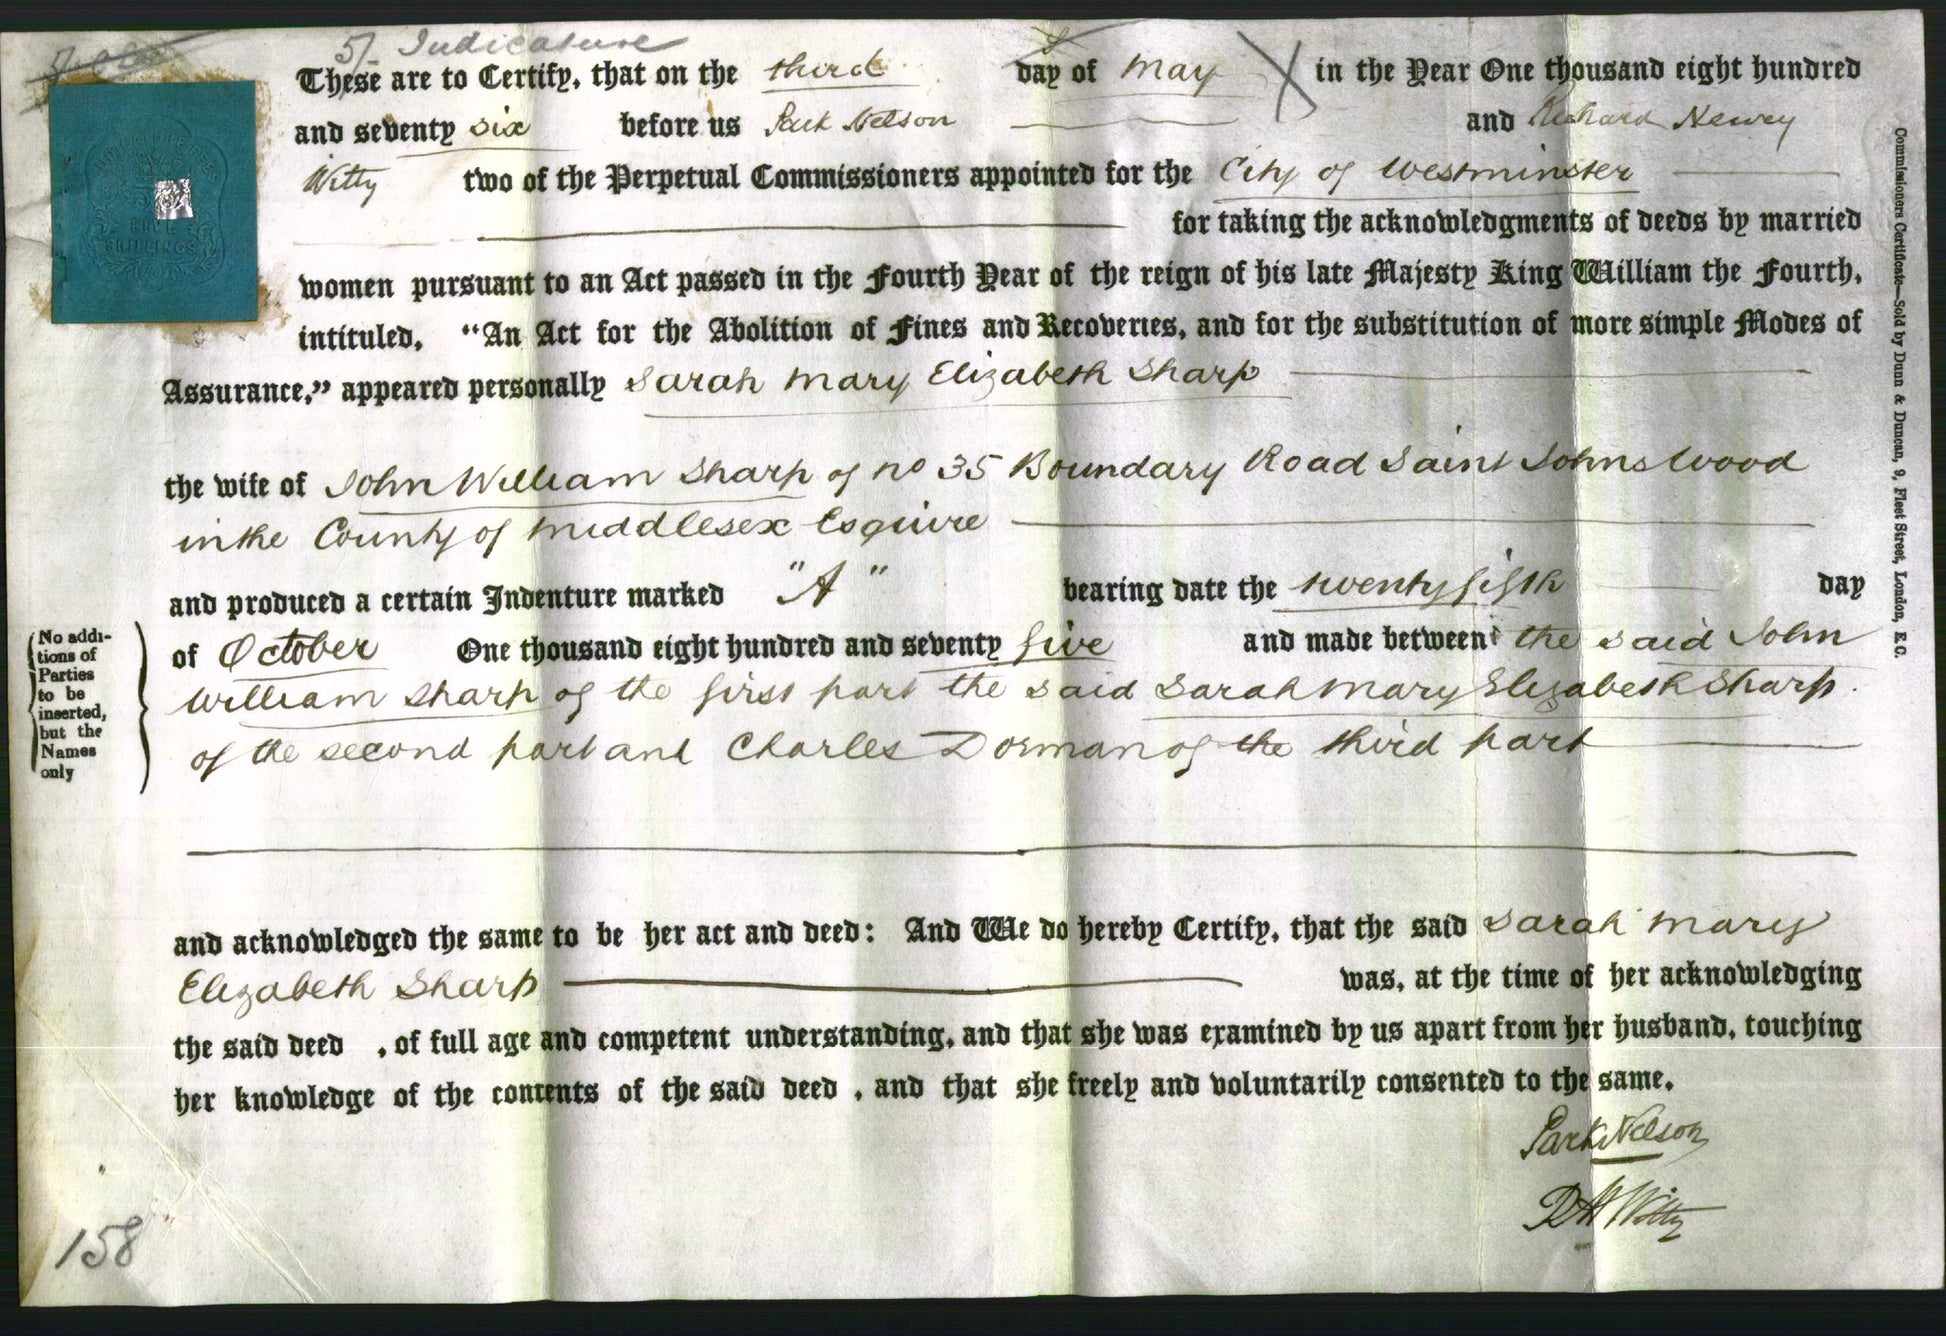 5/- Judicature
These are to Certify, that on the third day of May in the Year One thousand eight hundred
and seventy six before us Park Nelson and Richard Newey
Witty two of the Perpetual Commissioners appointed for the City of Westminster
for taking the acknowledgments of deeds by married
women pursuant to an Act passed in the Fourth Year of the reign of his late Majesty King William the Fourth,
intituled, “An Act for the Abolition of Fines and Recoveries, and for the substitution of more simple Modes of
Assurance,” appeared personally Sarah Mary Elizabeth Sharp
the wife of John William Sharp of no 35 Boundary Road Saint Johns Wood
in the County of Middlesex Esquire
and produced a certain Indenture marked "A" bearing date the twenty fifth day
of October One thousand eight hundred and seventy five and made between the said John
William Sharp of the first part the said Sarah Mary Elizabeth Sharp.
of the second part and Charles Dorman of the third part
and acknowledged the same to be her act and deed: And We do hereby Certify, that the said Sarah Mary
Elizabeth Sharp was, at the time of her acknowledging
the said deed , of full age and competent understanding, and that she was examined by us apart from her husband, touching
her knowledge of the contents of the said deed , and that she freely and voluntarily consented to the same.
Park Nelson
R N Witty
No addi-
tions of
Parties
to be
inserted,
but the
Names
only
158
FIVE
SHILLINGS
Commissioners Certificate—Sold by Dunn & Duncan, 9, Fleet Street, London, E.C.